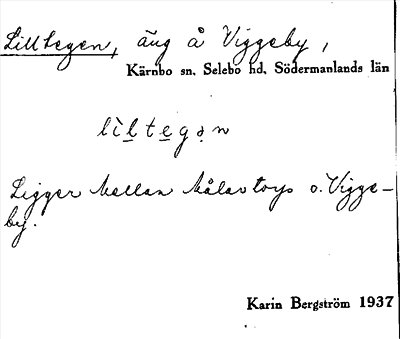 Lilltegen, äng å Viggeby,
Kärnbo sn. Selebo hd. Södermanlands län
lìltegạn
Ligger mellan Målartorp o. Vigge-
by.
Karin Bergström 1937